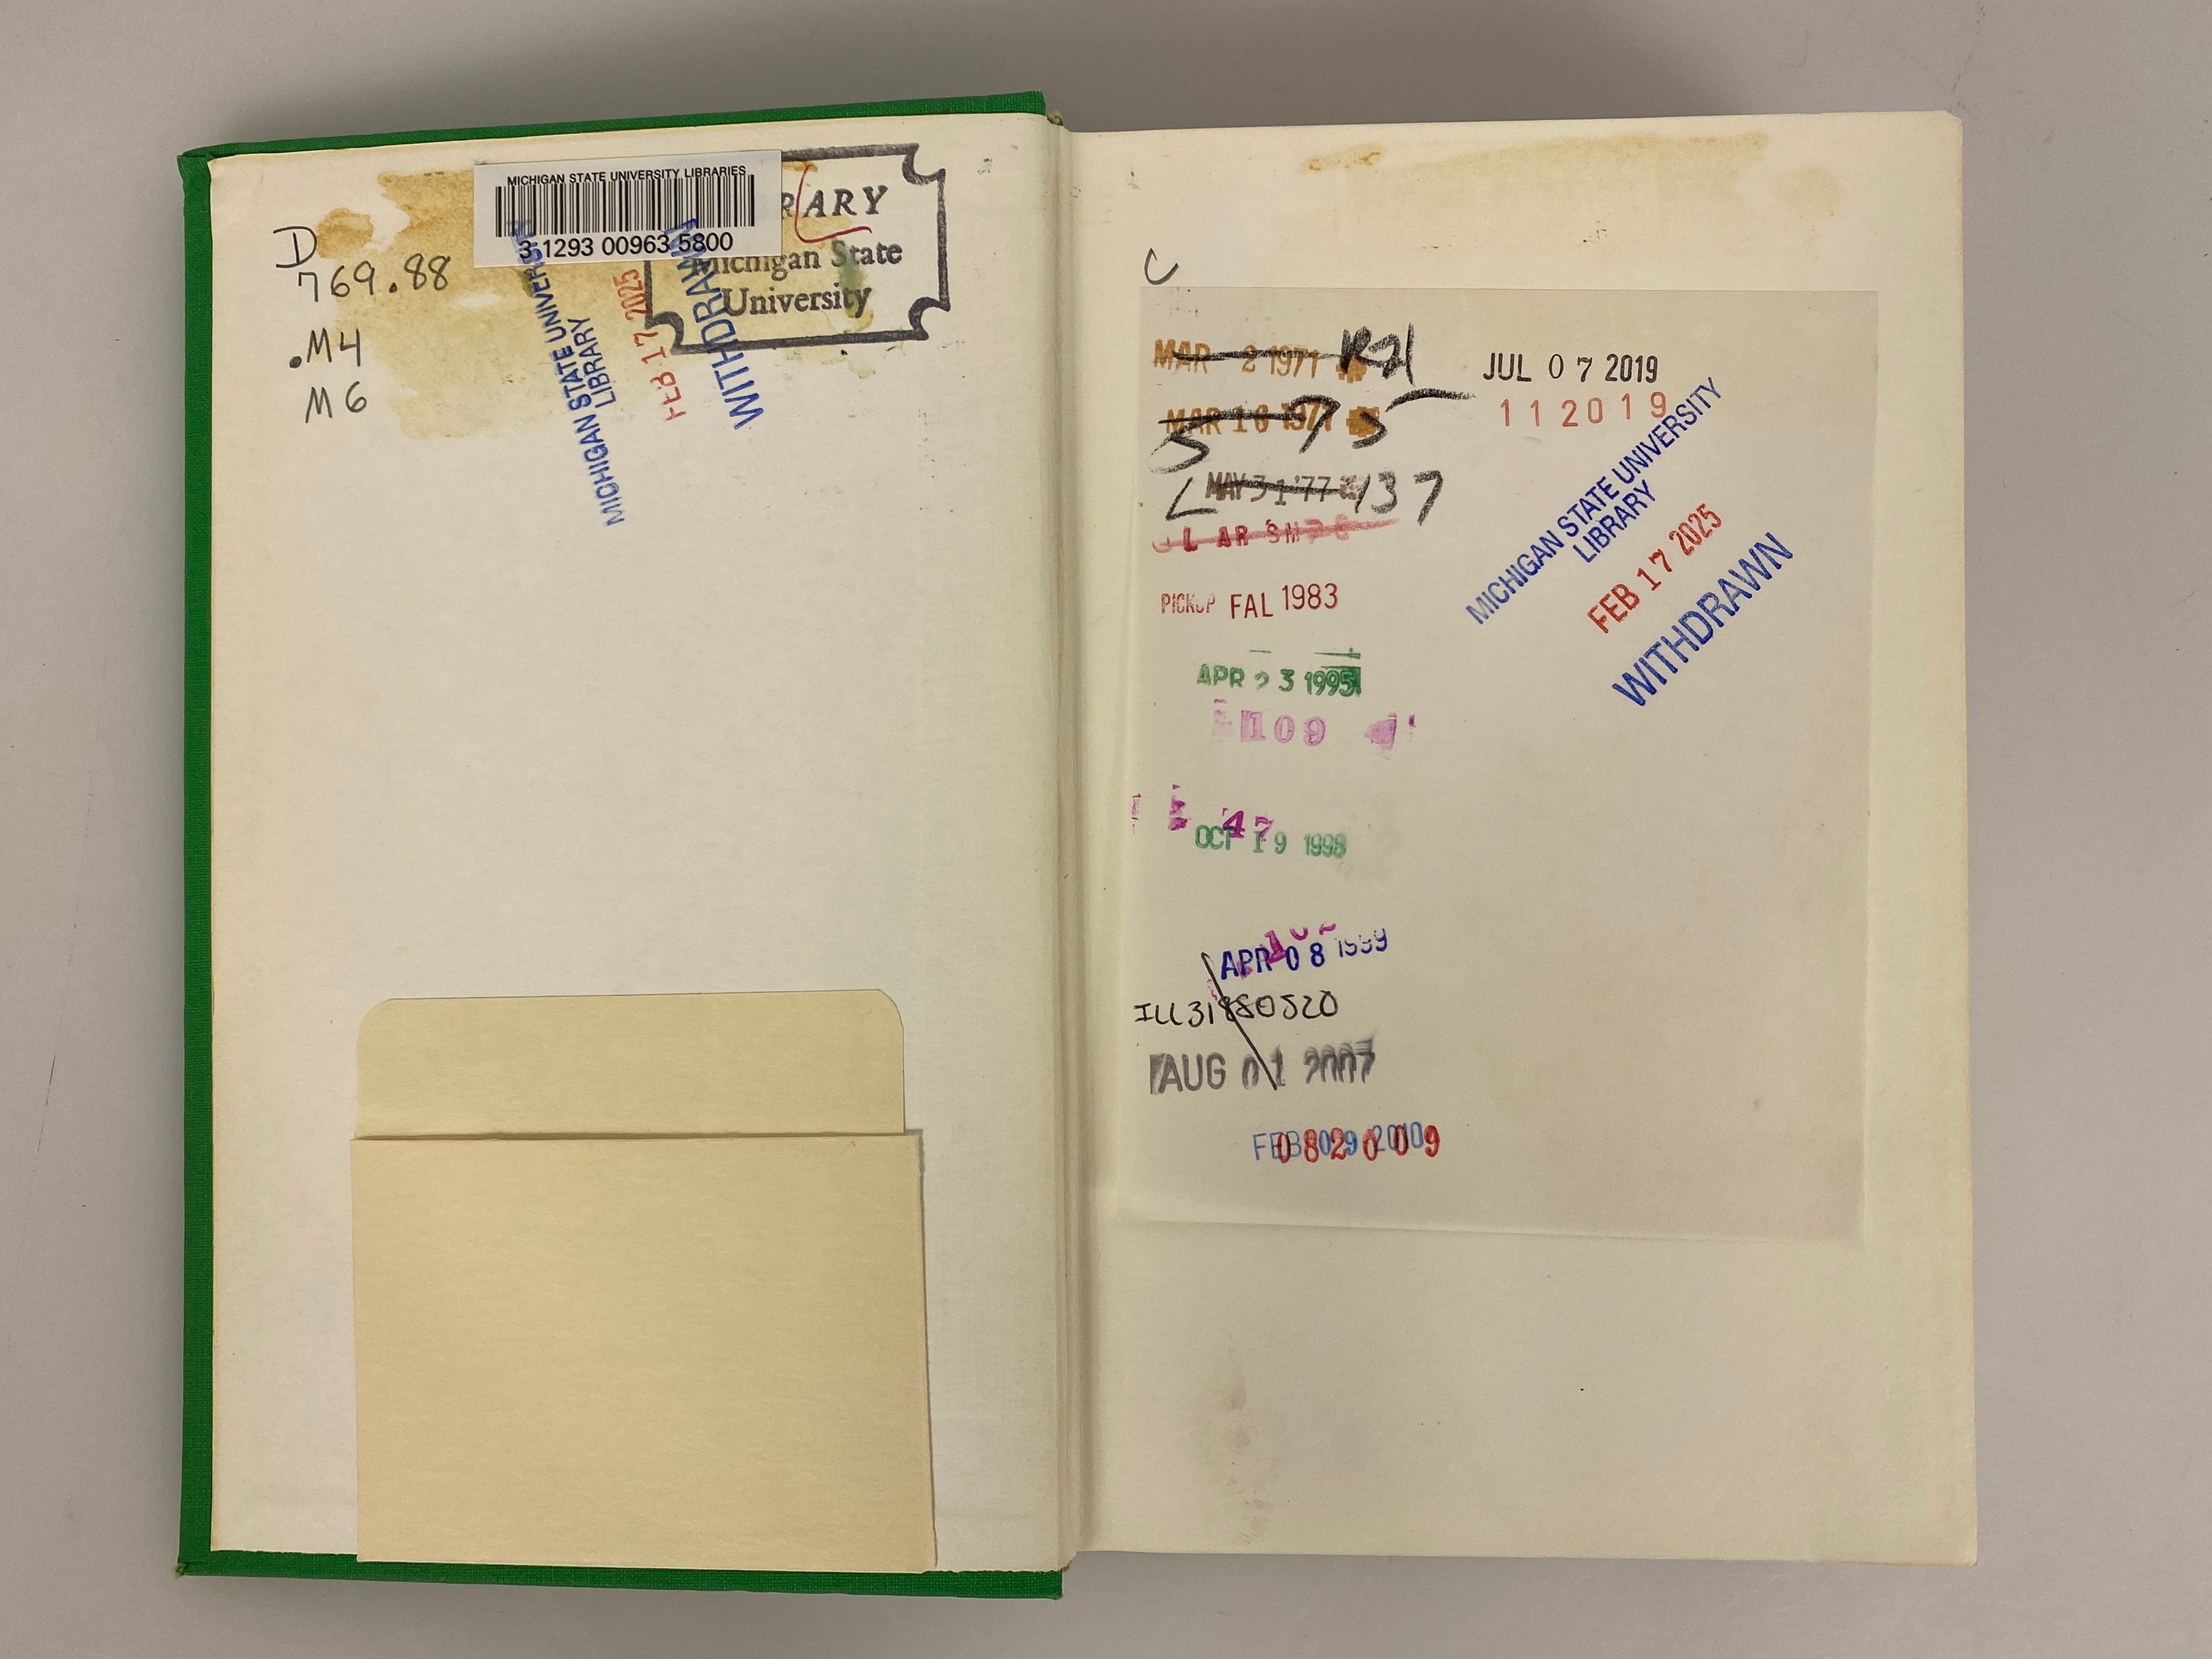 MICHIGAN STATE UNIVERSITY LIBRARIES
3 1293 00963 5800
RARY
Michigan State
University
D
769.88
.M4
M6
MICHIGAN STATE UNIVERSITY
LIBRARY
FEB 17 2025
WITHDRAWN
MAR 2 1971
MAR 16 1971
MAY 31 '77
PICKUP FAL 1983
APR 23 1995
109
47
OCT 19 1998
APR 08 1999
ILL31980520
AUG 01 2007
FEB 09 2010
082009
JUL 07 2019
112019
MICHIGAN STATE UNIVERSITY
LIBRARY
FEB 17 2025
WITHDRAWN